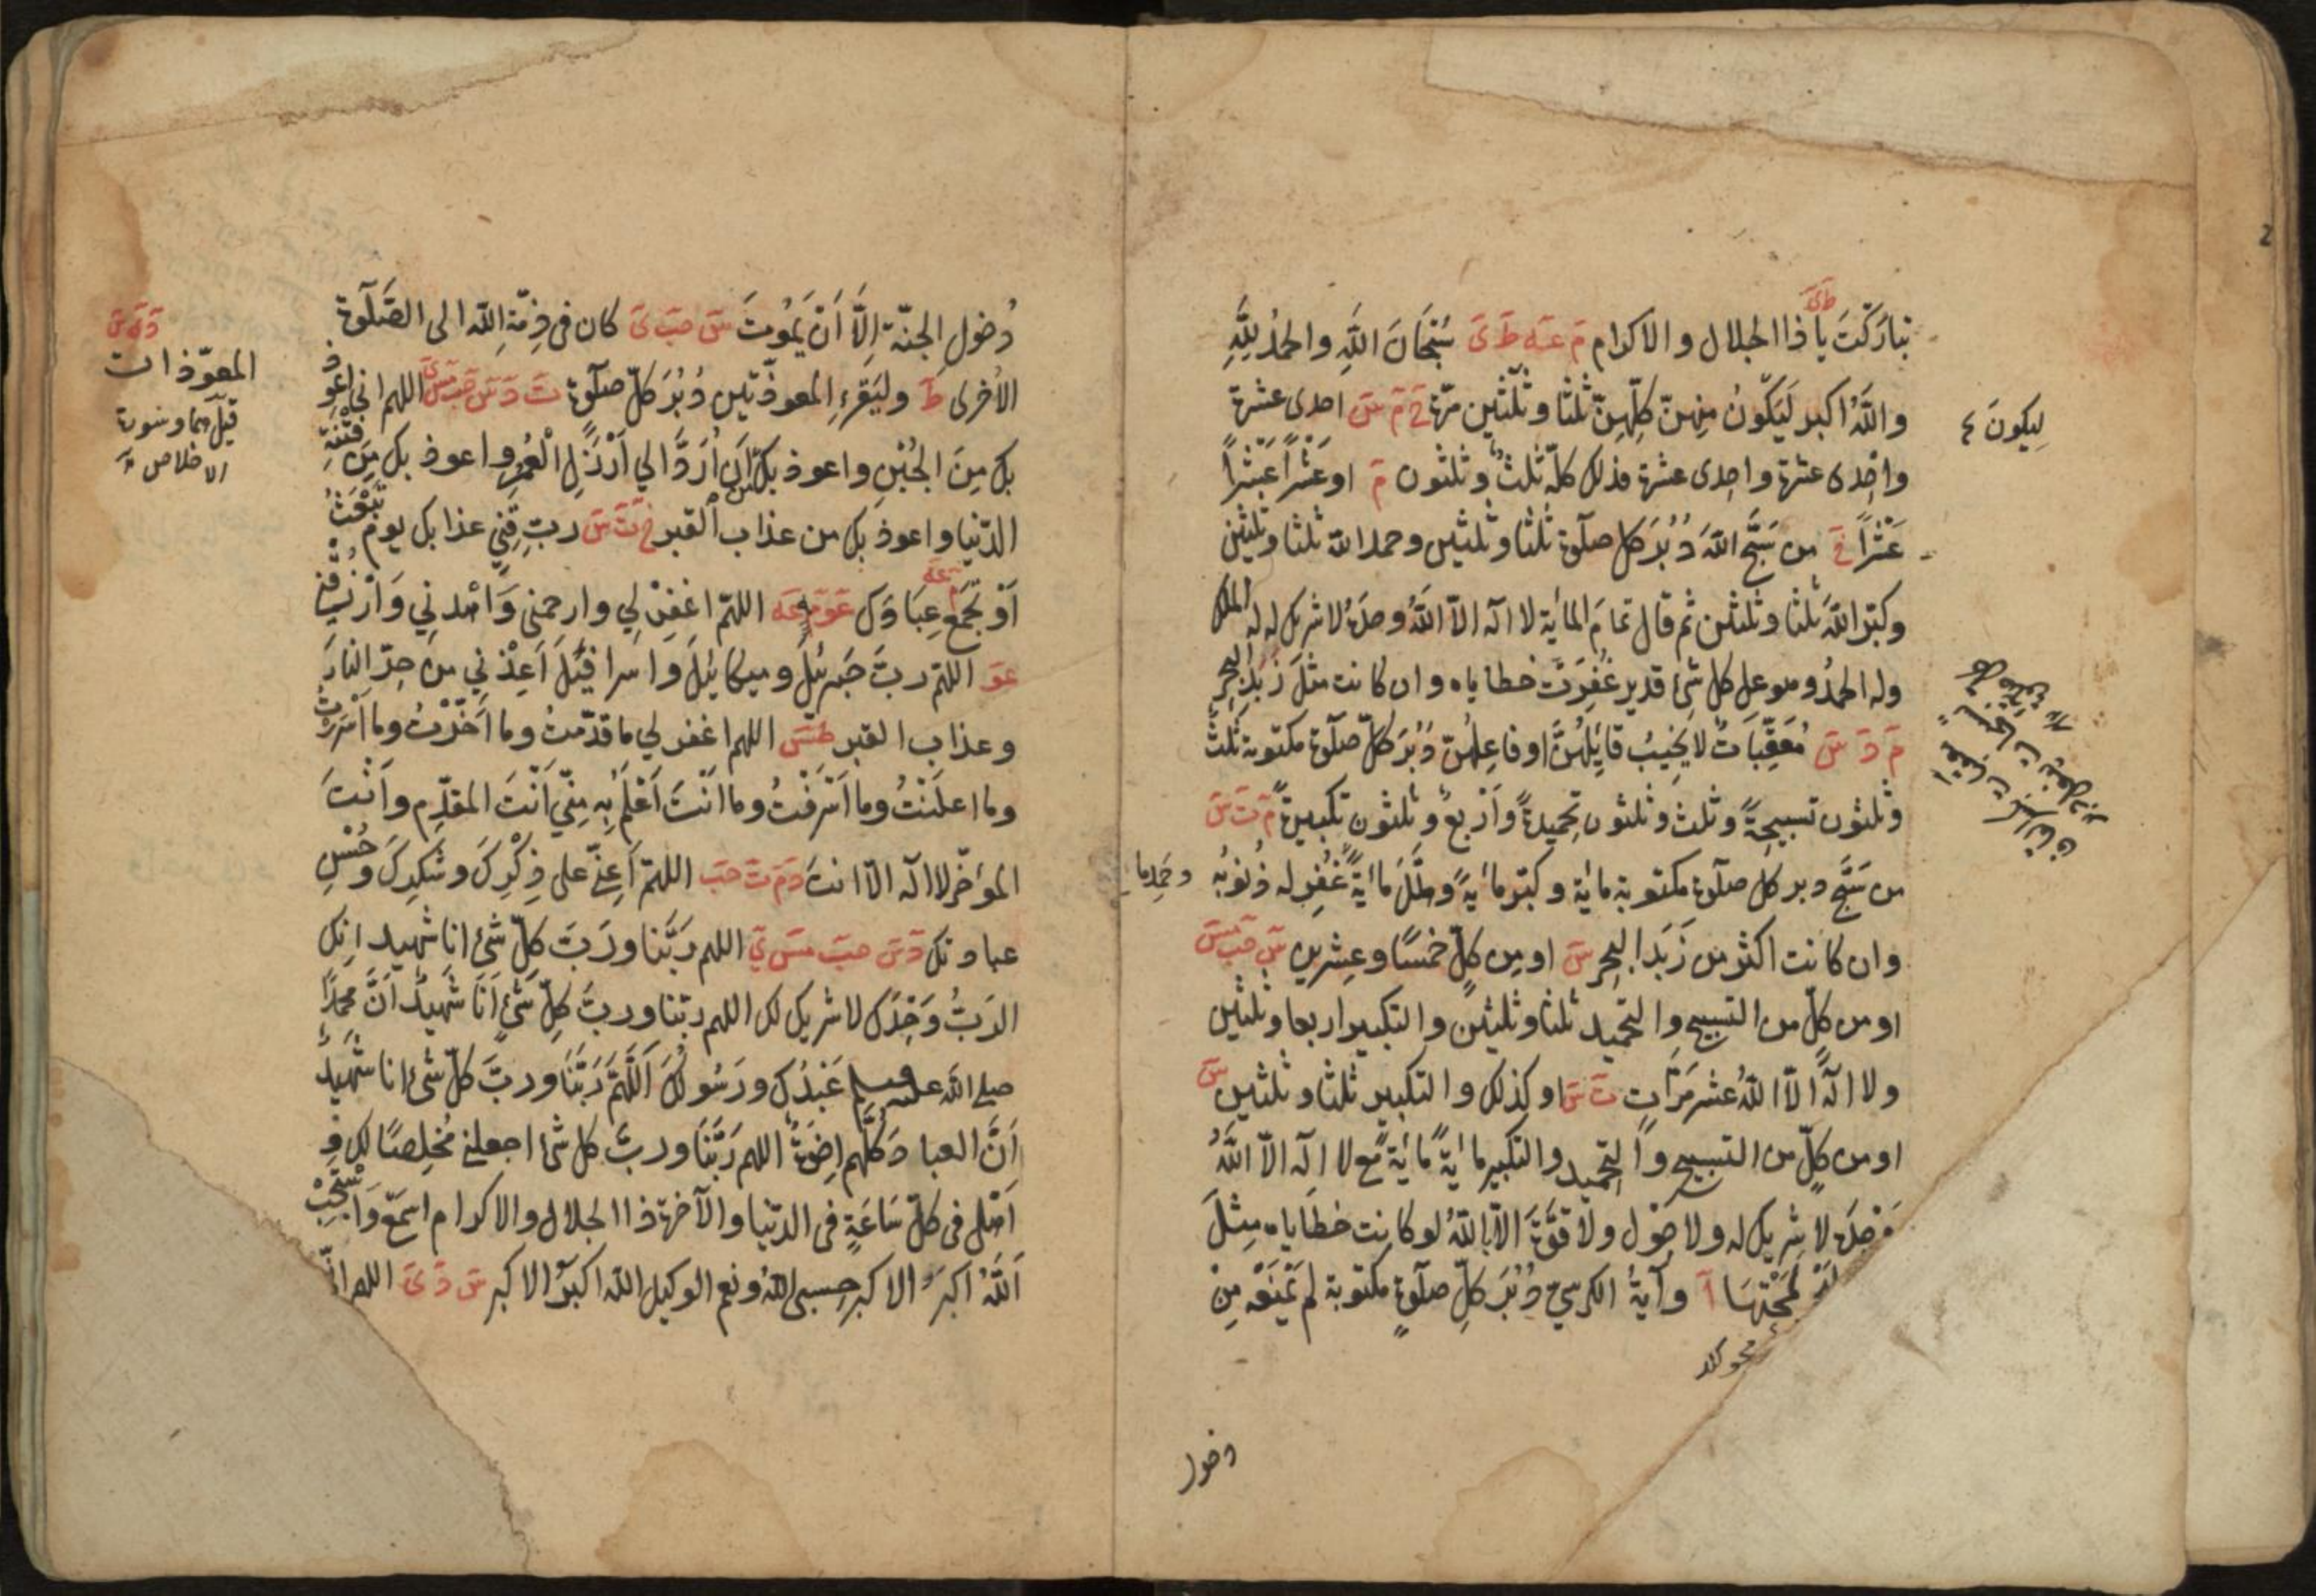 طَىَ
تبارَكْتَ يا ذا الجلال والاكرام مَ عَه طَ ىَ سُبْحَانَ اللَّهِ والحمدُ لِلَّهِ
واللَّهُ اكبر لَيَكُونُ مِنهنّ كلِّهِنّ ثلثا وثلثين مرّة خَ مَ سَ احدى عشرة
لِيكونَ
واحدى عشرة واحدى عشرة فذلك كلّه ثلثٌ وثلثون مَ او عَشْراً عَشْراً
عَشْراً خَ من سَبَّحَ اللهَ دُبُرَ كل صلوة ثلثا وثلثين وحمد الله ثلثا وثلثين
وكبّر اللهَ ثلثا وثلثين ثم قال تمامَ المائة لا اله الّا اللهُ وحدهُ لا شريك له له الملك
وله الحمدُ وهو على كل شئ قدير غُفِرَتْ خطاياه وان كانت مثلَ زبَدِ البحر
مَ دَ سَ مُعَقِّباتٌ لا يَخِيبُ قائِلُهُنَّ او فاعِلُهُنّ دُبُرَ كلّ صلوة مكتوبة ثلثٌ
وثلثون تسبيحةً وثلث وثلثون تحميدةً وأربعٌ وثلثون تكبيرةً مَ تَ سَ
من سَبَّح دبر كل صلوة مكتوبة مائة وكبّر مائةً وهلَّلَ مائةً غُفِر له ذُنوبُه
وحَمِد ما
وان كانت اكثر من زَبَد البحر سَ او مِن كلٍّ خمسًا وعِشرين سَ حبَ مسَ
او من كلٍّ من التسبيح والتحميد ثلثا وثلثين والتكبير اربعا وثلثين
ولا الهَ الّا اللهُ عشرَ مَرّاتٍ تَ سَ او كذلك والتكبير ثلثا وثلثين سَ
او من كلٍّ من التسبيح والتحميد والتكبير مائةً مائةً مع لا اله الّا اللَّهُ
وَحْدَه لا شريك له ولا حَوْل ولا قُوَّةَ الّا باللهِ لو كانت خطاياه مِثلَ
لمَحَتْهَا آ وآيةُ الكرسيّ دُبُرَ كلِّ صلوةٍ مكتوبة لم يَمْنَعْه مِنْ
دخول
دُخولِ الجنّة اِلَّا أَنْ يَمُوتَ سَ حبَ ىَ كان فى ذِمّةِ الله الى الصَّلٰوة
الاُخرى طَ وليَقْرَءِ المعوذتين دُبُرَ كلّ صلوة تَ دَ سَ حبَ مسَ ىَ اللهم انى اعوذ
دَ تَ سَ
المعوّذات
قيل هما وسورة
الاخلاص
بك مِنَ الجُبْنِ واعوذ بك من اَن اُرَدَّ الي اَرْذَلِ الْعُمُرِ واعوذ بك مِن فِتْنَةِ
الدّنيا واعوذ بك من عذاب القبر خَ تَ سَ ربِّ قِنِي عذابك يوم تَبْعَثُ
اَوْ تَجْمَعُ عِبَادَكَ عَوَ مَ عَه اللهمّ اغفِرْ لي وارحمنى وَاهْدِنِي وَارْزُقْنِي
عوَ اللهمّ ربَّ جَبرئيلَ وميكائيلَ واسرافيلَ اَعِذْنِي من حرّ النار
وعذاب القبر طسَ اللهم اغفر لي ما قدّمتُ وما أخّرْتُ وما أسْرَرْتُ
وما اعلَنْتُ وما اَسْرَفْتُ وما اَنْتَ اَعْلَمُ بِه مِنّي اَنْتَ المقدّم واَنْتَ
المؤخّر لا اله الّا انت دَ مَ تَ حبَ اللهمّ اَعِنِّي على ذِكْرِكَ وشُكرِكَ وحُسْنِ
عبادتك دَ سَ حبَ مسَ ىَ اللهم رَبَّنا ورَبَّ كلّ شئ انا شهيد انك
الرَبُّ وَحْدَك لا شريك لك اللهم ربّنا وربَّ كلِّ شَئٍ اَنَا شَهيدٌ اَنَّ محمّدًا
صلى الله عليه وسلم عَبْدُك ورَسُولُكَ اَللَّهُمَّ رَبَّنَا وربَّ كلّ شئ انا شَهيدٌ
اَنَّ العبادَ كلَّهم اِخوَةٌ اللهم رَبَّنَا وربّ كل شئ اجعلنى مُخلِصًا لك و
اَهْلى فى كلّ سَاعَةٍ فى الدنيا والآخرة ذا الجلال والاكرام اسمَعْ وَاسْتَجِبْ
اَللَّهُ اكبرُ الاكبر حسبى اللهُ ونعم الوكيل الله اكبرُ الاكبر سَ دَ ىَ اللهم انّى